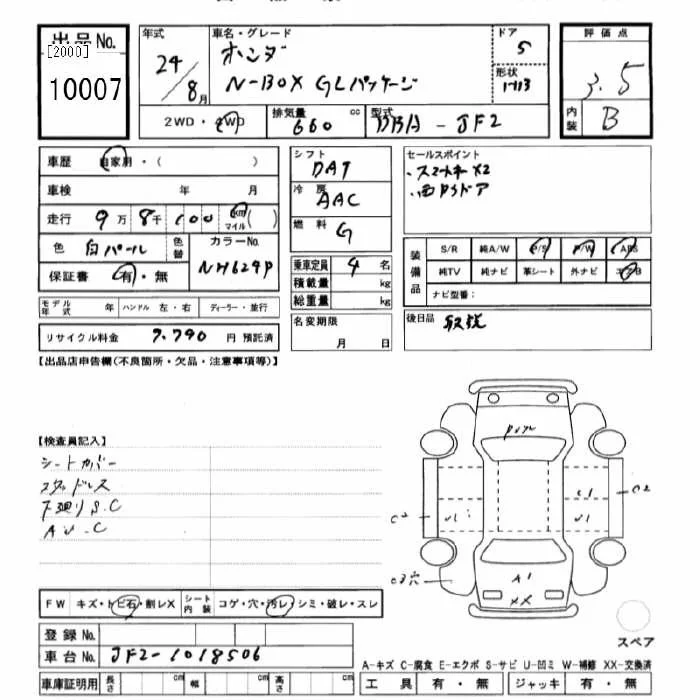 出品No.
[2000]
10007
年式
24/8月
車名・グレード
ホンダ
N-BOX GLパッケージ
ドア
5
形状
評価点
3.5
内装
B
2WD・4WD
排気量 660 cc
型式 DBA-JF2
車歴 自家用・( )
車検 年 月
走行 9万8千100 km マイル( )
色 白パール
色替
カラーNo.
NH624P
保証書 有・無
モデル年式 年 ハンドル 左・右 ディーラー・並行
リサイクル料金 9.790 円 預託済
シフト
DAT
冷房
AAC
燃料
G
乗車定員 4 名
積載量 kg
総重量 kg
名変期限
月 日
セールスポイント
・スマートキーX2
・両PSドア
装備品
S/R 純A/W P/S P/W ABS
純TV 純ナビ 革シート 外ナビ エアB
ナビ型番:
後日品 取説
【出品店申告欄(不良箇所・欠品・注意事項等)】
【検査員記入】
シートカバー
スタッドレス
下廻りS.C
FW キズ・トビ石・割レX
シート内装 コゲ・穴・汚レ・シミ・破レ・スレ
登録No.
車台No. JF2-1018506
車庫証明用 長さ cm 幅 cm 高さ cm
C2
C2
A1
XX
C3穴
スペア
A-キズ C-腐食 E-エクボ S-サビ U-凹ミ W-補修 XX-交換済
工具 有・無 ジャッキ 有・無